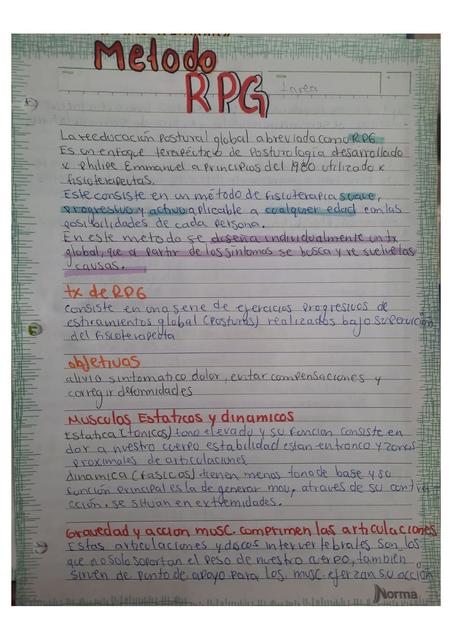 Metodo
RPG
tarea
La reeducación postural global abreviado como RPG
Es un enfoque terapéutico de Posturología desarrollado
x Philipe Emmanuel a Principios del 1980 utilizado x
fisioterapeutas.
Este consiste en un método de fisioterapia suave,
progresivo y activo aplicable a cualquier edad con las
posibilidades de cada persona.
En este metodo se diseña individualmente un tx
global, que a partir de los sintomas se busca y resuelve las
causas.
tx de RPG
consiste en una serie de ejercicios progresivos de
estiramientos global (Posturas) realizados bajo supervición
del Fisioterapeuta
objetivos
alivio sintomatico dolor, evitar compensaciones y
corregir deformidades
Musculos Estaticos y dinamicos
Estatica (tonicos) tono elevado y su funcion consiste en
dar a nuestro cuerpo estabilidad estan en tronco y zonas
proximales de articulaciones
dinamica (fasicos) tienen menos tono de base y su
función principal es la de generar mov, através de su contra-
cción. se situan en extremidades.
Gravedad y accion musc. comprimen las articulaciones
Estas articulaciones y discos intervertebrales son los
que no solo soportan el peso de nuestro cuerpo, también
sirven de punto de apoyo para los musc. ejerzan su acción
Norma